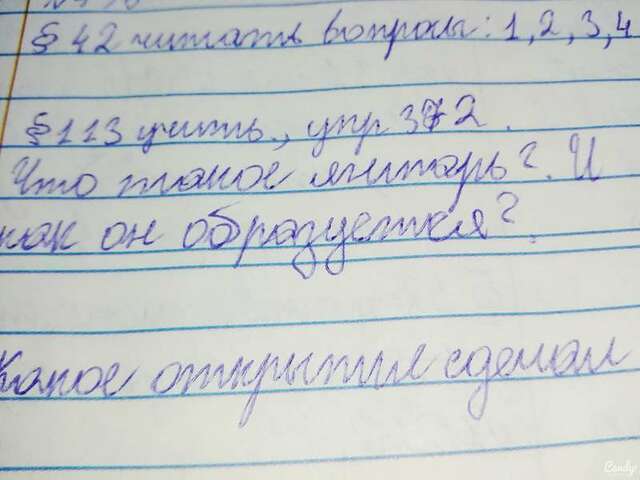 § 42 читать вопросы: 1, 2, 3, 4
§ 113 учить, упр 372.
Что такое янтарь?. И
как он образуется?.
Какое открытия сделал
Candy